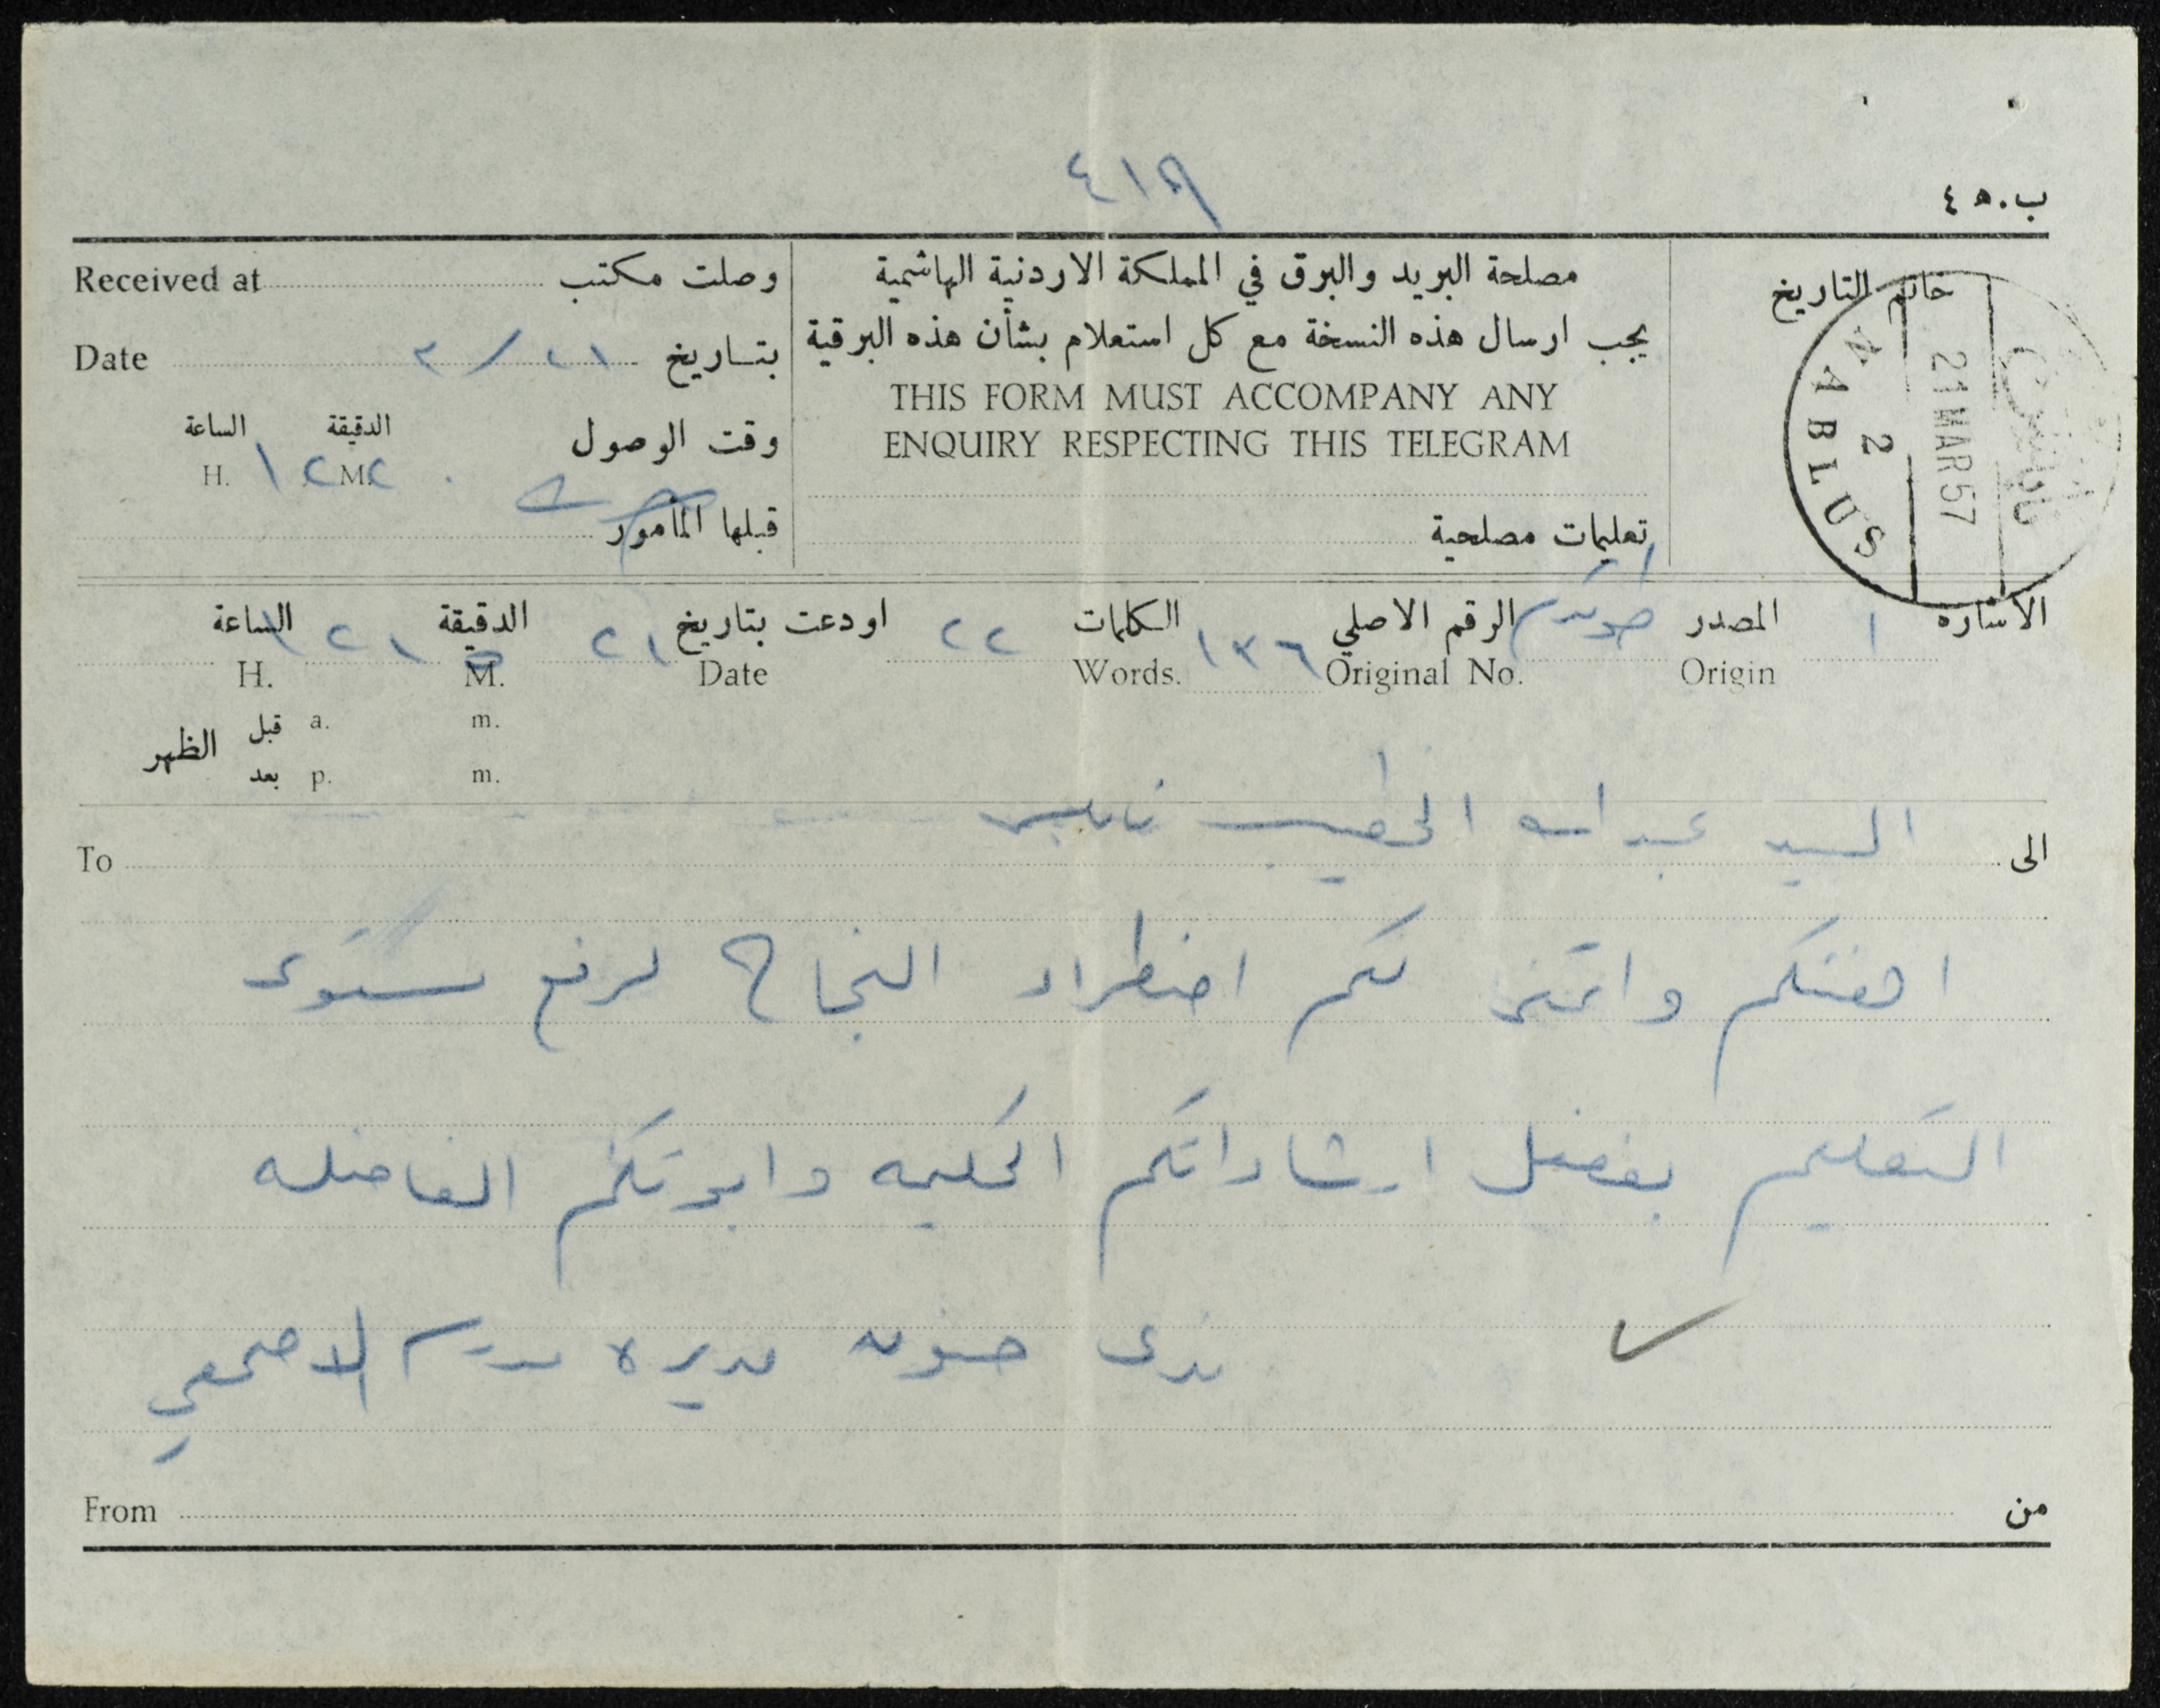 ٤١٩
ب.٤٥
Received at وصلت مكتب
Date بتاريخ ٢١/٣
الساعة الدقيقة وقت الوصول
H. M. ١٢٢٢
قبلها المأمور
مصلحة البريد والبرق في المملكة الاردنية الهاشمية
يجب ارسال هذه النسخة مع كل استعلام بشأن هذه البرقية
THIS FORM MUST ACCOMPANY ANY
ENQUIRY RESPECTING THIS TELEGRAM
تعليمات مصلحية
خاتم التاريخ
NABLUS
2
21 MAR 57
نابلس
الاشارة ١ المصدر طولكرم الرقم الاصلي ١٣٦ الكلمات ٢٢ اودعت بتاريخ ٢١ الدقيقة الساعة
Origin Original No. Words. Date M. H.
قبل الظهر a. m.
بعد p. m.
الى السيد عبد الله الخطيب نابلس
To
اهنئكم واتمنى لكم اضطراد النجاح لرفع مستوى
التعليم بفضل ارشاداتكم الحكيمه وابوتكم الفاضله
حنون مديرة مدرسة الاصمعي
From من